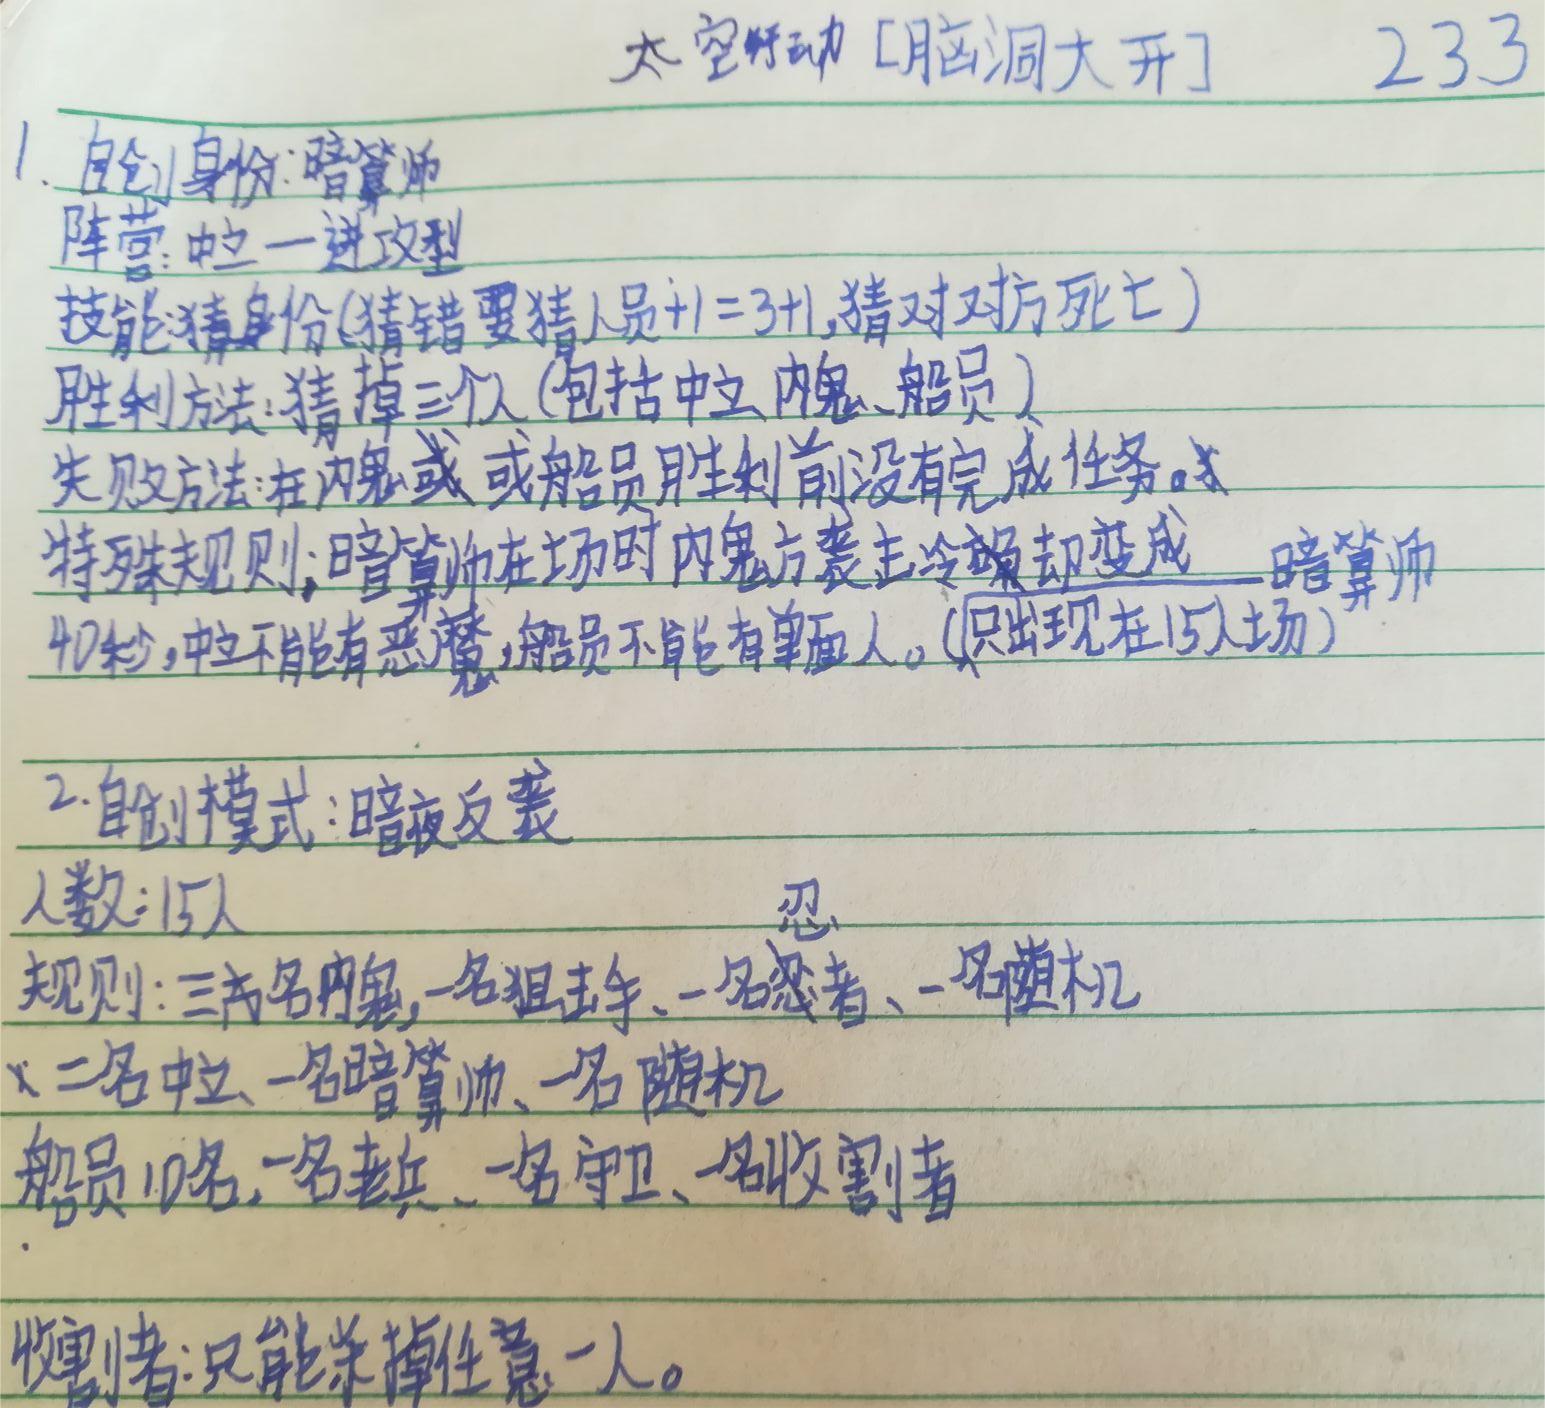 太空行动[脑洞大开] 233
1. 自创身份:暗算师
阵营:中立一进攻型
技能:猜身份(猜错要猜人员+1=3+1,猜对对方死亡)
胜利方法:猜掉三个人(包括中立、内鬼、船员)
失败方法:在内鬼或 或船员胜利前没有完成任务。
特殊规则:暗算师在场时内鬼方袭击冷却变成
40秒,中立不能有恶魔,船员不能有掌面人。(只出现在15人场)——暗算师
2.自创模式:暗夜反袭
人数:15人
规则:三名内鬼,一名狙击手、一名忍者、一名随机
二名中立、一名暗算师、一名随机
船员10名,一名老兵、一名守卫、一名收割者
收割者:只能杀掉任意一人。